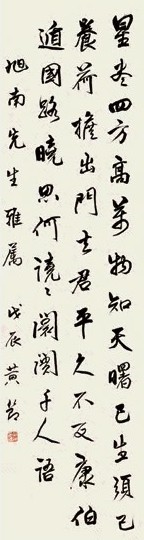 星尽四方高萬物知天曙已生須己
養荷擔出門去君平久不反康伯
遁國路曉思何譊〻闤闠千人語
旭南先生雅属 戊辰黄節